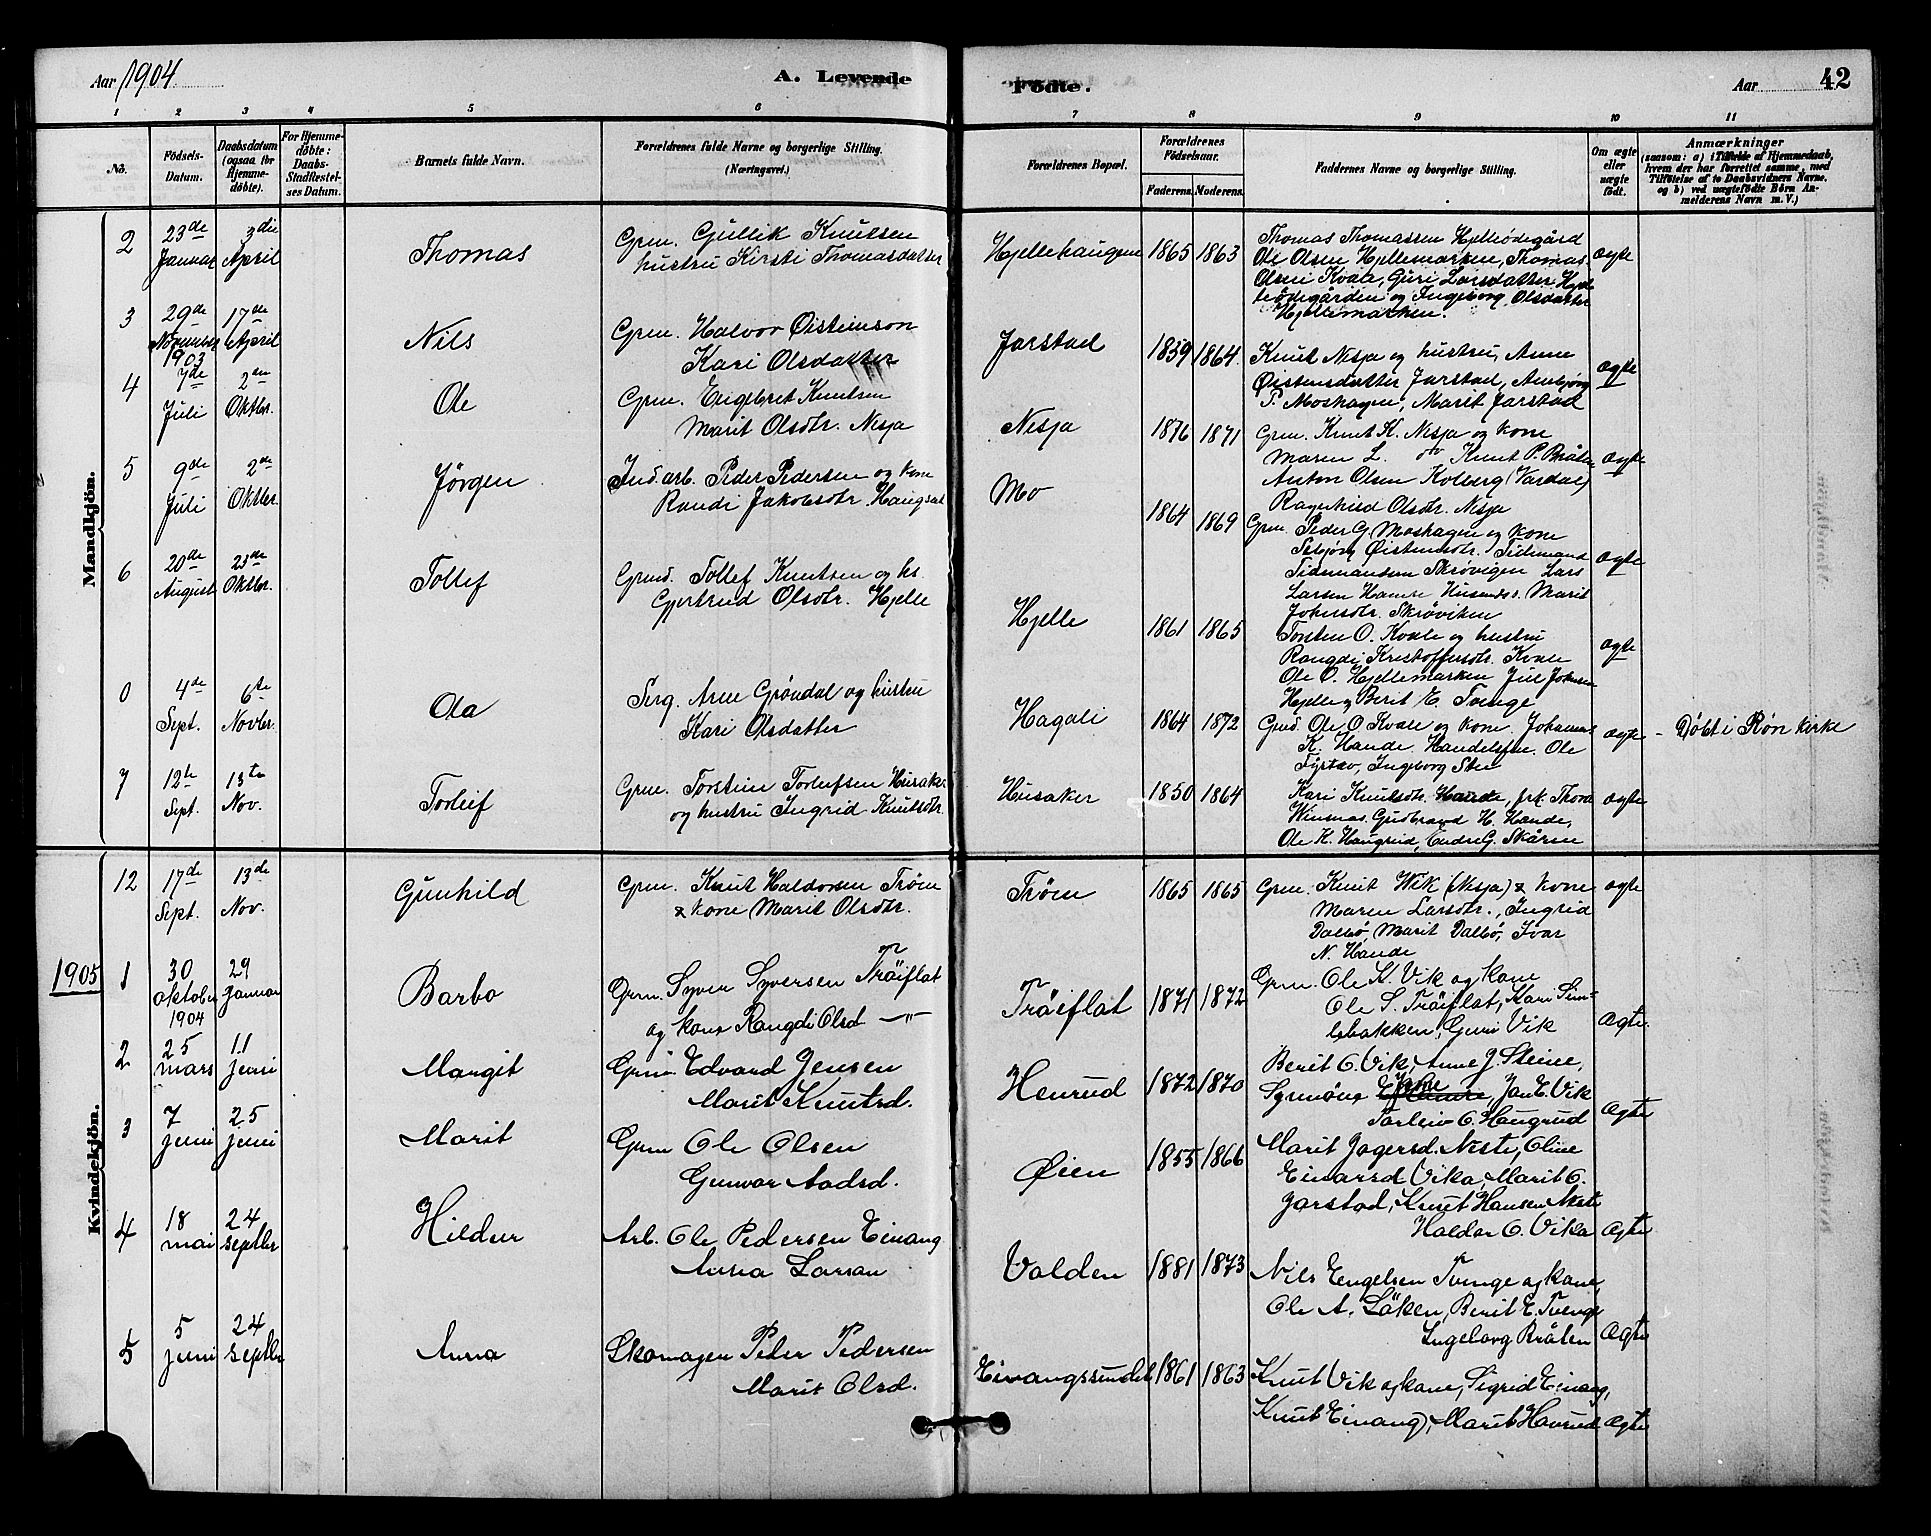 Aar 1904. A. Levende Födte. Aar 42
1 2 3 4 5 6 7 8 9 10 11
No.
Födsels-Datum.
Daabsdatum (ogsaa for Hjemmedöbte).
For Hjemmedöbte: Daabs-Stadfestelses Datum.
Barnets fulde Navn.
Forældrenes fulde Navne og borgerlige Stilling. (Næringsvei.)
Forældrenes Bopæl.
Forældrenes Födselsaar.
Faderens. Moderens.
Faddernes Navne og borgerlige Stilling.
Om ægte eller uægte födt.
Anmærkninger
(saasom: a) i Tilfælde af Hjemmedaab, hvem der har forrettet samme, med Tilföielse af to Daabsvidners Navne, og b) ved uægtefödte Börn Anmelderens Navn m. V.)
Mandkjön.
2 23de Januar 3die April Thomas Grm. Gullik Knutsen
hustru Kirsti Thomasdatter
Hjellehaugen 1865 1863 Thomas Thomassen Hjelleödegård
Ole Olsen Hjellemarken, Thomas
Olsen Kvale, Guri Larsdatter Hjel
leödegården og Ingeborg Olsdatter
Hjellemarken. ægte
3 29de November 1903 17de April Nils Grm. Halvor Øistenson
Kari Olsdatter
Jarstad 1839 1864. Knut Nesja og hustru, Anne
Øistensdatter Jarstad, Ambjørg
P. Moshagen, Marit Jarstad ægte
4 7de Juli 2den Oktbr. Ole Grm. Engebret Knutsen
Marit Olsdtr. Nesja
Nesja 1876 1871 Grm. Knut K. Nesja og kone
Maren L. Knut P. Bråten
Anton Olsen Kolberg (Vardal)
Ragnhild Olsdtr. Nesja ægte
5 9de Juli 2de Oktbr. Jørgen Ind.arb. Peder Pedersen og kone
Randi Jakobsdtr. Haugsrud
Mo 1864 1869 Grm. Peder G. Moshagen og kone
Sebjørg Øistensdtr. Tidemand
Tidemansen Skrøvigen Lars
Larsen Hamre Husmds. Marit
Johnsdtr. Skrøviken ægte
6 20de August 23de Oktbr. Tollef Grmd. Tollef Knutsen og hs.
Gjertrud Olsdtr. Hjelle
Hjelle 1861 1865 Torsten O. Kvale og hustru
Rangdi Kristoffersdtr. Kvale
Ole O. Hjellemarken Juul Johnsen
Hjelle og Berit E. Tvenge ægte
0 4de Sept. 6te Novbr. Ola Serg. Arne Grøndal og hustru
Kari Olsdatter
Hagali 1864 1872 Grmd. Ole O. Kvale og kone. Johannes
K. Hande. Handelsm. Ole
Fystro, Ingeborg Sten ægte - Döbt i Røn kirke
7 12te Sept. 13te Nov. Torleif Grm. Torstein Torleifsen Husaker
og hustru Ingrid Knutsdtr.
Husaker 1850 1864 Kari Knutsdtr. Hande, frk. Thora
Winsnes. Gudbrand H. Hande,
Ole H. Haugrud, Endre G. Skåren ægte
Kvindekjön.
12 17de Sept. 13de Nov. Gunhild Grm. Knut Haldorsen Trøen
& kone Marit Olsdtr.
Trøen 1865 1865 Grm. Knut Wik (Nesja) & kone
Maren Larsdtr., Ingrid
Dalbø, Marit Dalbø, Ivar
N. Hande ægte
1905 1 30 oktober 1904 29 januar Barbo Grm. Syver Syversen Trøiflat
og kone Rangdi Olsd —"—
Trøiflat 1871 1872 Grm. Ole K. Vik og kone
Ole S. Trøiflat, Kari Sun-
debakken, Guri Vik Ægte.
2 25 mars 11 juni Margit Grm Edvard Jensen
Marit Knutsd.
Henrud 1872 1870 Berit O. Vik, Anne J. Steine,
Synnøve, Jan E. Vik
Torleiv O. Haugrud Ægte
3 7 juni 25 juni Marit Grm Ole Olsen
Gunvor Aadsd.
Øien 1855 1866 Marit Jogersd. Neste, Oline
Einarsd Vika, Marit O.
Jarstad, Knut Hansen Neste
Haldor O. Vika Ægte
4 18 mai 24 septbr Hildur Arb. Ole Pedersen Einang
Anna Larsen
Volden 1881 1873 Nils Engelsen Tvenge og kone,
Ole A. Løken, Berit E. Tvenge
Ingeborg Bråten Ægte
5 5 juni 24 septbr Anna Skomager Peder Pedersen
Marit Olsd.
Einangssundet 1861 1863 Knut Vik og kone, Sigrid Einang,
Knut Einang, Marit Havrud Ægte